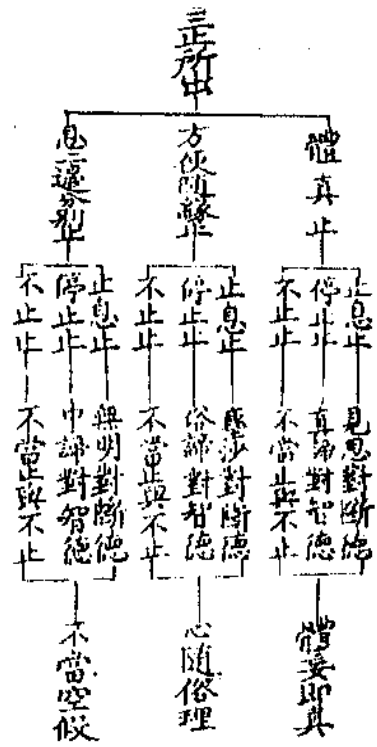 三止所
體真止
止息止
見思對斷德
停止止
真諦對智德
不止止
不當止與不止
體妄即真
方便隨緣止
止息止
塵沙對斷德
停止止
俗諦對智德
不止止
不當止與不止
心隨俗理
息二邊分別止
止息止
無明對斷德
停止止
中諦對智德
不止止
不當止與不止
不當空假